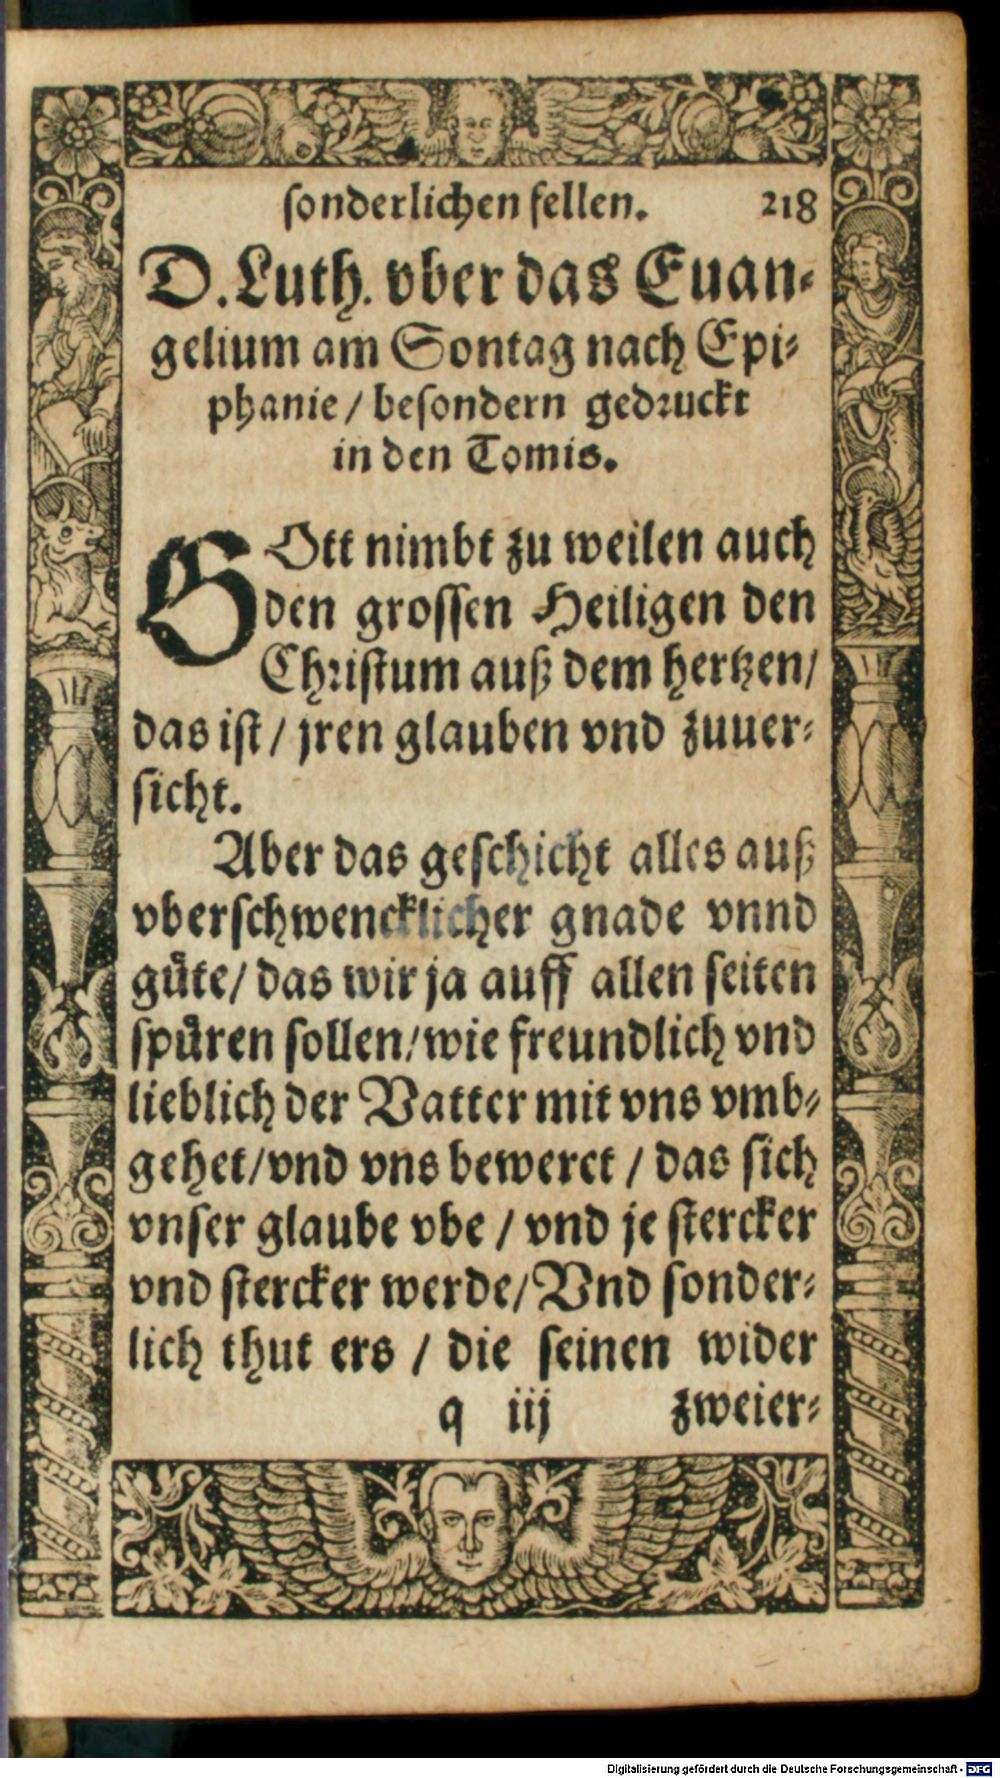 sonderlichen fellen. 218
D. Luth. vber das Euan-
gelium am Sontag nach Epi-
phanie / besondern gedruckt
in den Tomis.
GOtt nimbt zu weilen auch
den grossen Heiligen den
Christum auß dem hertzen/
das ist / jren glauben vnd zuuer-
sicht.
Aber das geschicht alles auß
vberschwencklicher gnade vnnd
guͤte/ das wir ja auff allen seiten
spuͤren sollen/ wie freundlich vnd
lieblich der Vatter mit vns vmb-
gehet/vnd vns bewerct / das sich
vnser glaube vbe / vnd je stercker
vnd stercker werde/ Vnd sonder-
lich thut ers / die seinen wider
q iij zweier-
Digitalisierung gefördert durch die Deutsche Forschungsgemeinschaft - DFG